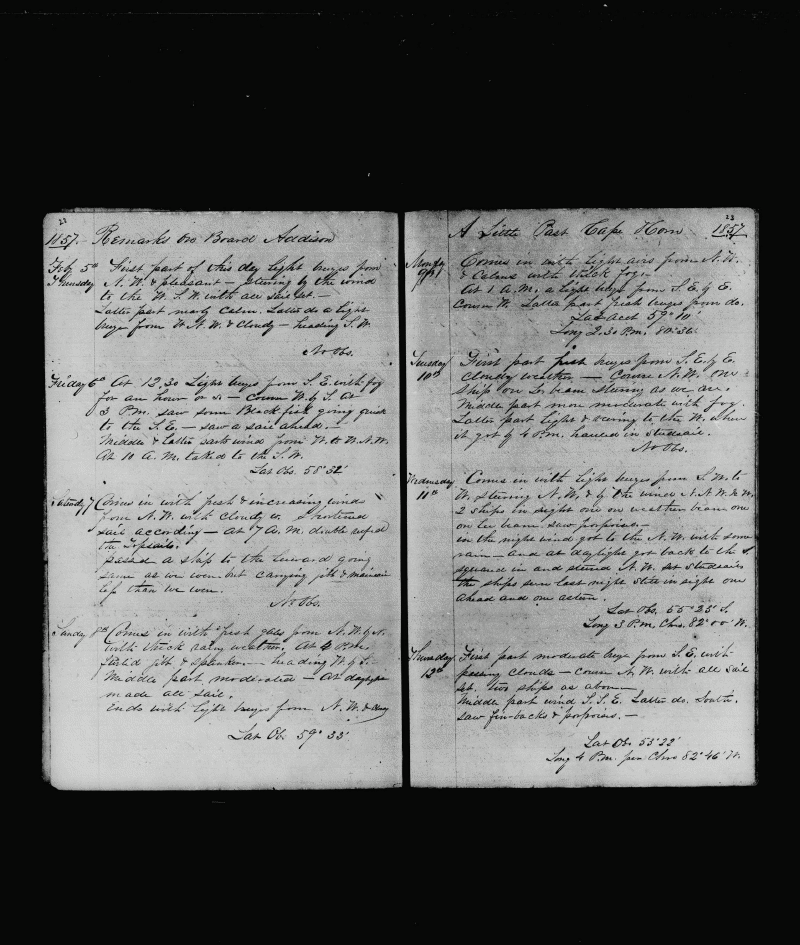 22
1857. Remarks on Board Addison
Feb 5th First part of this day light breezes from
Thursday N. W. & pleasant – steering by the wind
to the W. S. W. with all sail set. –
Latter part nearly calm. Latter do a light
breeze from W. N. W. & cloudy – heading S. W.
No Obs.
Friday 6th At 12.30 Light breezes from S. E. with fog
for an hour or so – course W. by S. At
3 P.M. saw some Blackfish going quick
to the S. E. – saw a sail ahead. –
Middle & latter parts wind from W. to W. N. W.
At 10 A. M. tacked to the S. W.
Lat Obs. 58° 52'
Saturday 7 Comes in with fresh & increasing winds
from N. W. with cloudy wr. Shortened
sail according – at 7 A. M. double reefed
the Topsails.
passed a ship to the leeward going
same as we were but carrying jib & mainsail
less than we were.
No Obs.
Sunday 8th Comes in with fresh gales from N. W. by N.
with thick rainy weather. At 4 P.M.
furl'd jib & spanker. – heading W. by S.
Middle part moderated – at daylight
made all sail.
Ends with light breezes from N. W. &
Lat Ob. 59° 33'
23
A Little Past Cape Horn 1857
Monday Comes in with light airs from N. W.
9th & Calms with thick fog. –
At 1 A.M. a light breeze from S. E. by E.
Course W. Latter part fresh breezes from do.
Lat Acct 59° 10'
Long 2.30 P.M. 80° 36'
Tuesday First part fresh breezes from S. E. by E.
10th cloudy weather – Course N. W. one
ship on Lee beam steering as we are.
Middle part more moderate with fog.
Latter part light & veering to the W. when
it got by 4 P.M. hauled in studsails.
No Obs.
Wednesday Comes in with light breezes from S. W. to
11th W. steering N. W. & by the wind N. N. W. & N.W.
2 ships in sight one on weather beam one
on lee beam. saw porpoises. –
in the night wind got to the N. W. with some
rain – and at daylight got back to the S.
squared in and steered N. W. set studsails
the ships seen last night still in sight one
ahead and one astern.
Lat Obs. 55° 25' S.
Long 3 P.M. Chro. 82° 00' W.
Thursday First part moderate breeze from S. E. with
12th passing clouds – course N. W. with all sail
set. two ships as above –
Middle part wind S. S. E. Latter do. South.
Saw fin-backs & porpoises. –
Lat Ob. 53° 22'
Long 4 P.M. per Chro 82° 46' W.